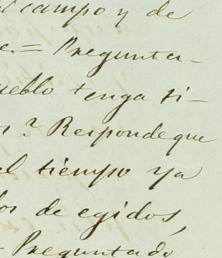 al campo y de
e.= Pregunta-
ueblo tenga ti-
s? Responde que
el tiempo ya
los de egidos,
- Preguntado